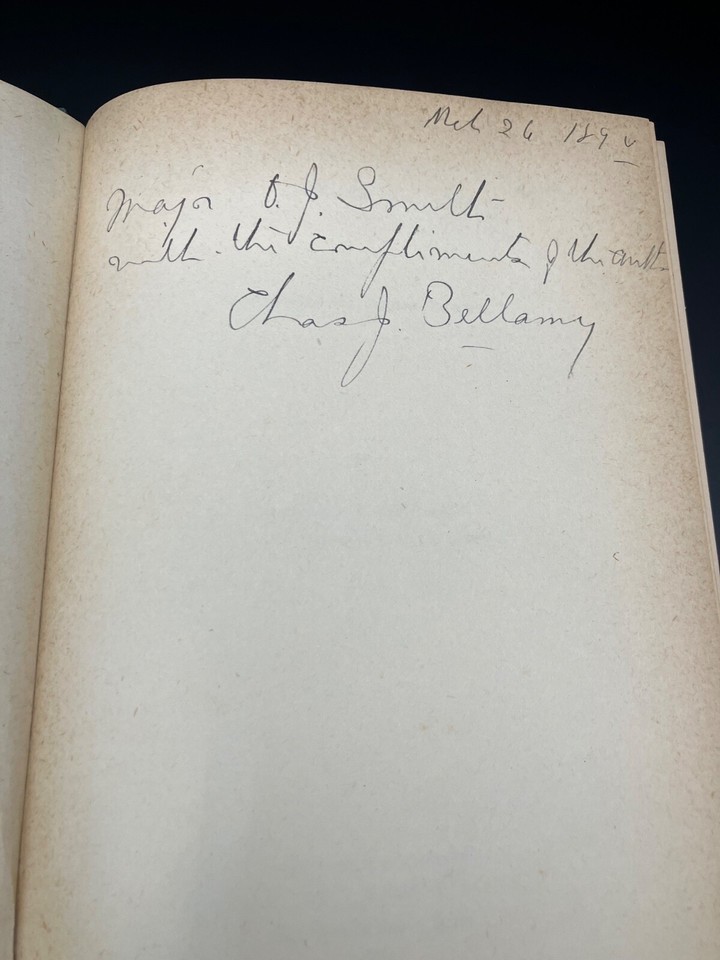 Mch 26 189
Major O. J. Smith
with the compliments of the auth
Chas J. Bellamy